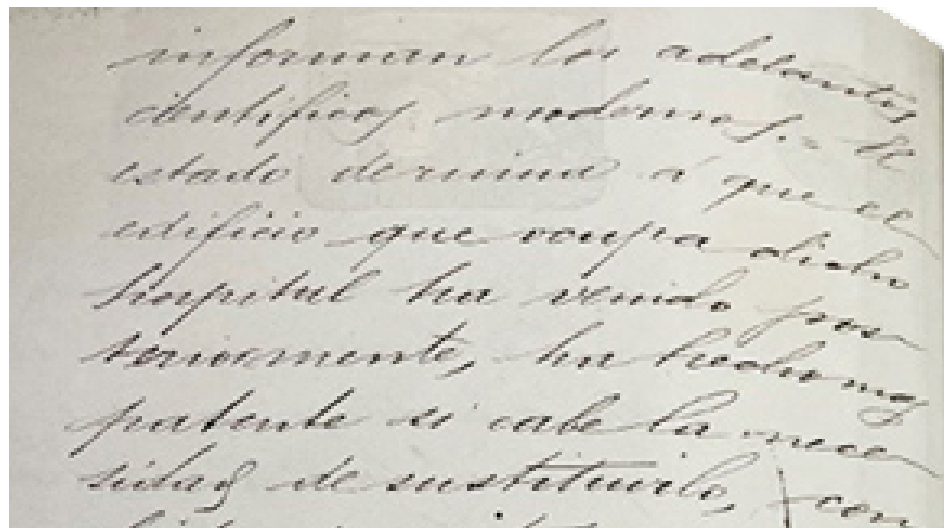 informan los adelantos
científicos modernos.- El
estado de ruina á que el
edificio que ocupa dicho
hospital ha venido pos
teriormente, ha hecho mas
patente si cabe la nece
sidad de sustituirlo, y con